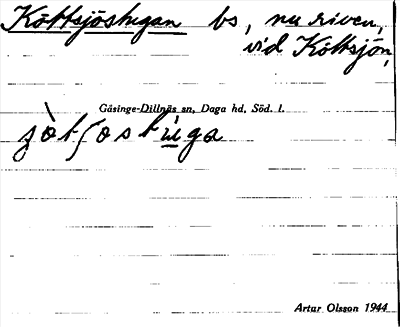 Köttsjöstugan bs, nu riven,
vid Köttsjön,
Gåsinge-Dillnäs sn, Daga hd, Söd. l.
Artur Olsson 1944